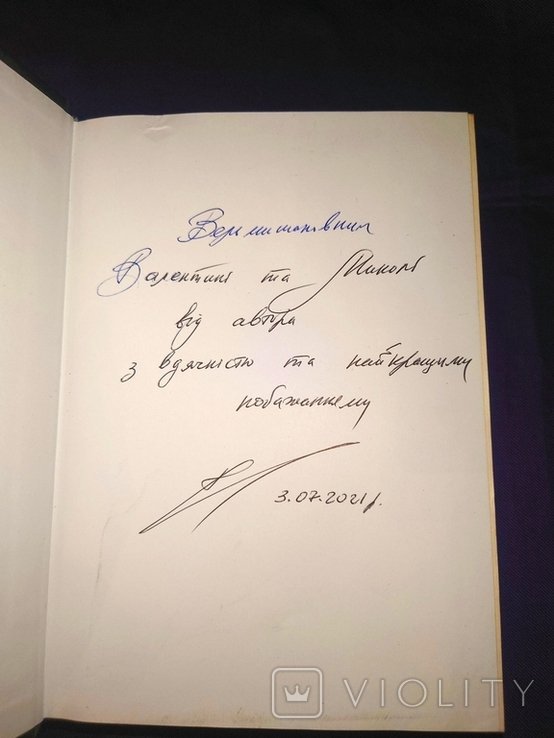 Вельмишановним
Валентині та Миколі
від автора
з вдячністю та найкращими
побажаннями
3.07.2021р.
VIOLITY